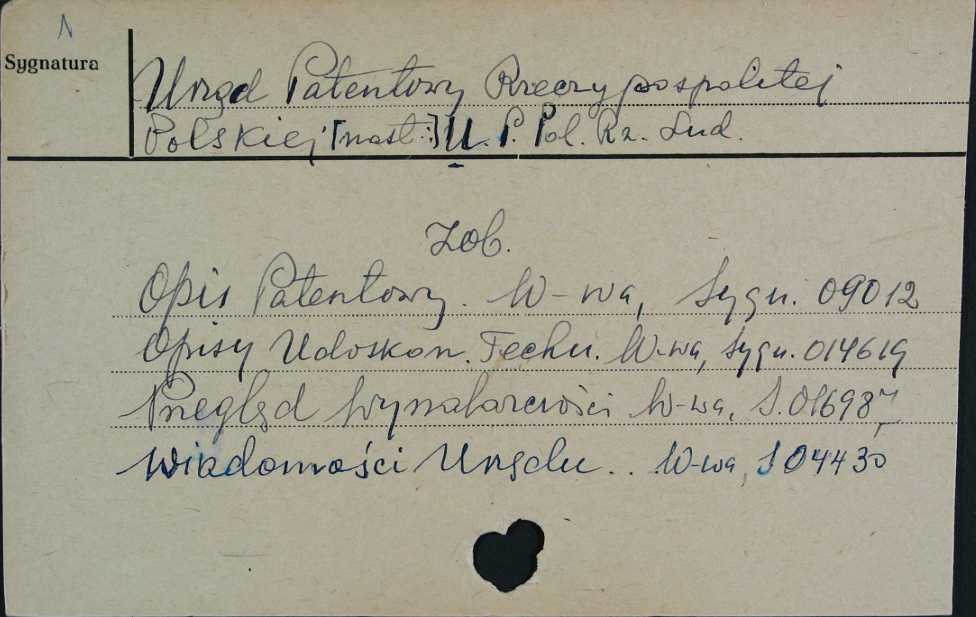 N
Sygnatura
Urząd Patentowy Rzeczypospolitej
Polskiej [nast.:] U. P. Pol. Rz. Lud.
Zob.
Opis Patentowy. W-wa, Sygn. 09012
Opisy Udoskon. Techn. W-wa, sygn. 014619
Przegląd Wynalazczości W-wa, S. 016987
Wiadomości Urzędu.. W-wa, S 04430